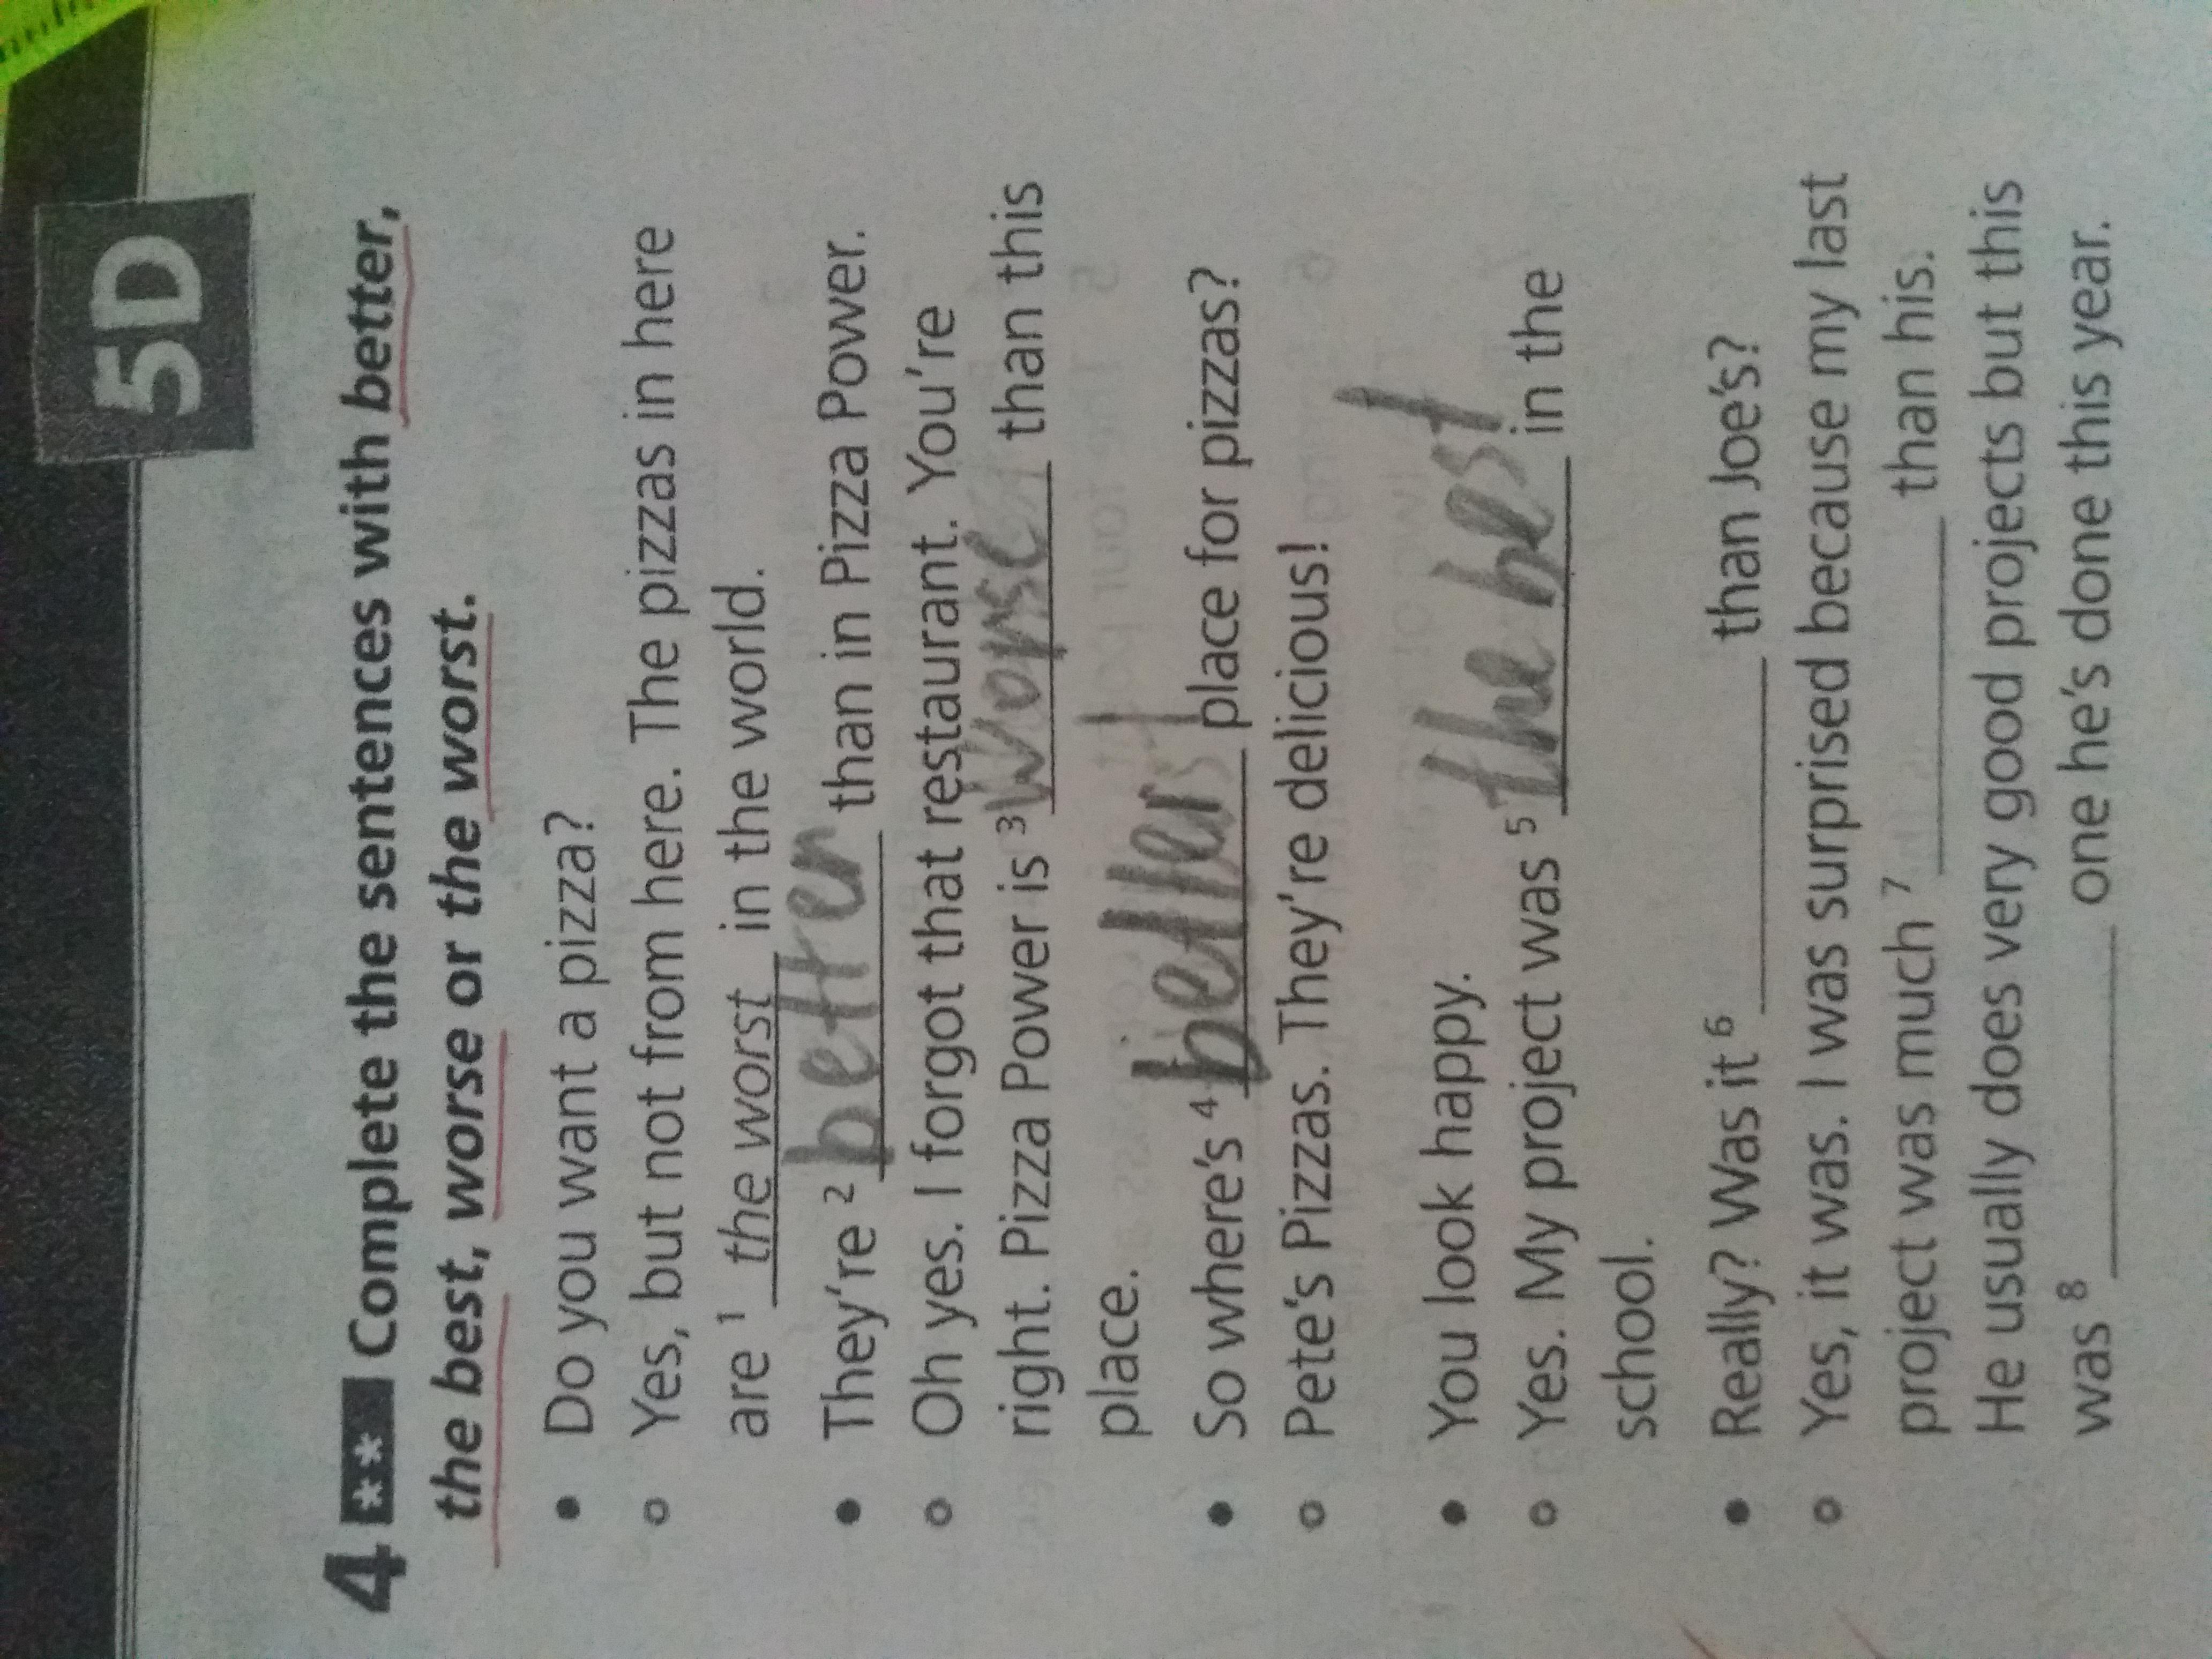 5D
4 ** Complete the sentences with better,
the best, worse or the worst.
• Do you want a pizza?
○ Yes, but not from here. The pizzas in here
are ¹ the worst in the world.
• They're ² better than in Pizza Power.
○ Oh yes. I forgot that restaurant. You're
right. Pizza Power is ³ worse than this
place.
• So where's ⁴ better place for pizzas?
○ Pete's Pizzas. They're delicious!
• You look happy.
○ Yes. My project was ⁵ the best in the
school.
• Really? Was it ⁶ ________ than Joe's?
○ Yes, it was. I was surprised because my last
project was much ⁷ ________ than his.
He usually does very good projects but this
was ⁸ ________ one he's done this year.